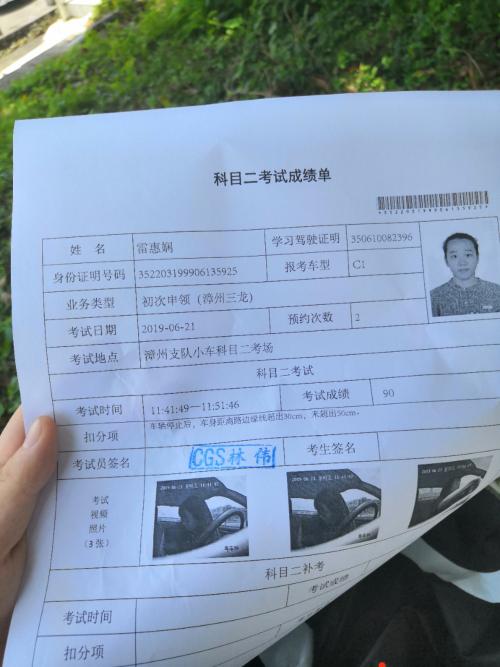 科目二考试成绩单
姓 名 雷惠娴 学习驾驶证明 350610082396
身份证明号码 352203199906135925 报考车型 C1
业务类型 初次申领（漳州三龙）
考试日期 2019-06-21 预约次数 2
考试地点 漳州支队小车科目二考场
科目二考试
考试时间 11:41:49—11:51:46 考试成绩 90
扣分项 车辆停止后，车身距离路边缘线超出30cm，未超出50cm。
考试员签名 CGS林 伟 考生签名
考试
视频
照片
（3 张）
科目二补考
考试时间 考试成绩
扣分项